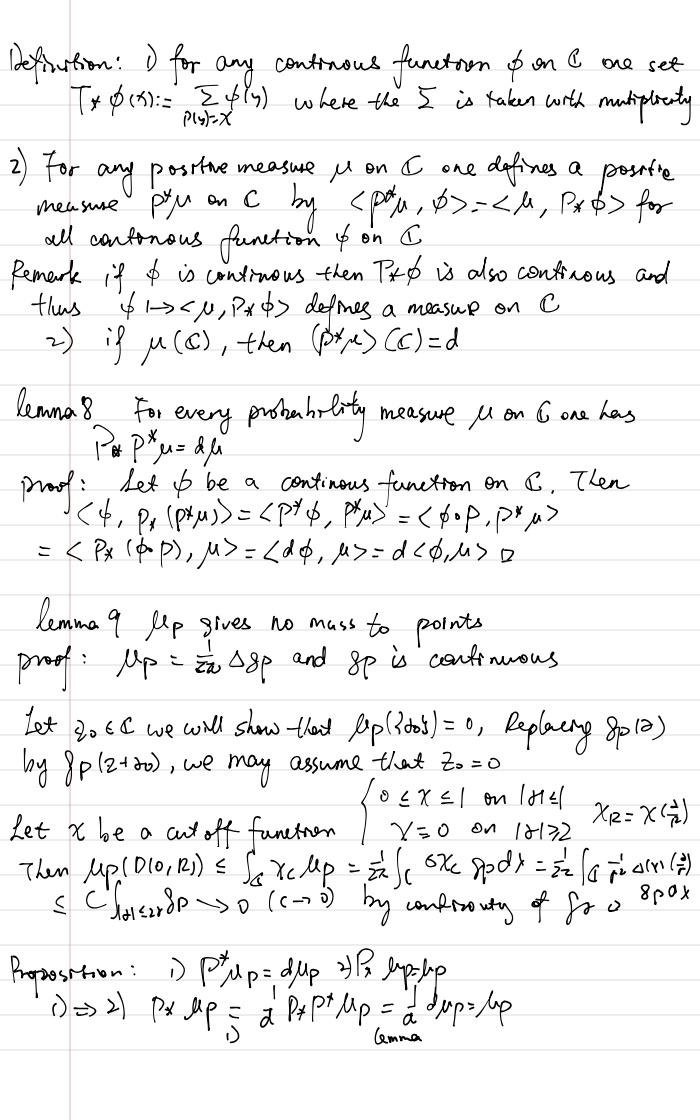 Definition: 1) for any continous function ϕ on ℂ one set
P_* ϕ(x) := Σ_{P(y)=x} ϕ(y) where the Σ is taken with mutiplicity
2) For any positive measure μ on ℂ one defines a positive
measure P*μ on ℂ by <P*μ, ϕ> = <μ, P_*ϕ> for
all contonous function ϕ on ℂ
Remark if ϕ is continous then P_*ϕ is also continous and
thus ϕ ↦ <μ, P_*ϕ> defines a measure on ℂ
2) if μ(ℂ), then (P*μ)(ℂ) = d
lemma 8 For every probability measure μ on ℂ one has
P_* P*μ = dμ
proof: Let ϕ be a continous function on ℂ. Then
<ϕ, P_*(P*μ)> = <P*ϕ, P*μ> = <ϕ∘P, P*μ>
= <P_*(ϕ∘P), μ> = <dϕ, μ> = d<ϕ,μ> □
lemma 9 μp gives no mass to points
proof: μp = 1/2π Δgp and gp is continuous
Let z₀ ∈ ℂ we will show that μp({z₀}) = 0, Replacing gp(z)
by gp(z+z₀), we may assume that z₀ = 0
Let χ be a cut off function { 0 ≤ χ ≤ 1 on |z|≤1
χ = 0 on |z|≥2 χ_R = χ(z/R)
Then μp(D(0,R)) ≤ ∫_ℂ χ_c μp = 1/2π ∫_ℂ Δχ_c gp dx = 1/2π ∫_ℂ 1/r² Δ(χ)(z/r) gp dx
≤ C ∫_{|z|≤2r} gp → 0 (c→0) by continouty of
Proposition: 1) P*μp = dμp 2) P_* μp = μp
1) ⇒ 2) P_* μp = 1/d P_* P*μp = 1/d dμp = μp
1) lemma